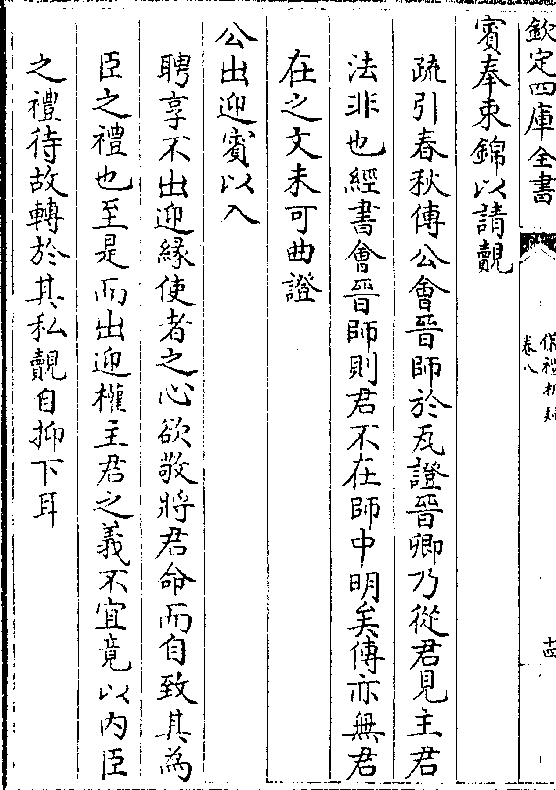 欽定四庫全書
儀禮析疑
卷八
十四
賓奉束錦以請覿
疏引春秋傳公會晉師於瓦證晉卿乃從君見主君
法非也經書會晉師則君不在師中明矣傳亦無君
在之文未可曲證
公出迎賓以入
聘享不出迎緣使者之心欲敬將君命而自致其為
臣之禮也至是而出迎權主君之義不宜竟以內臣
之禮待故轉於其私覿自抑下耳